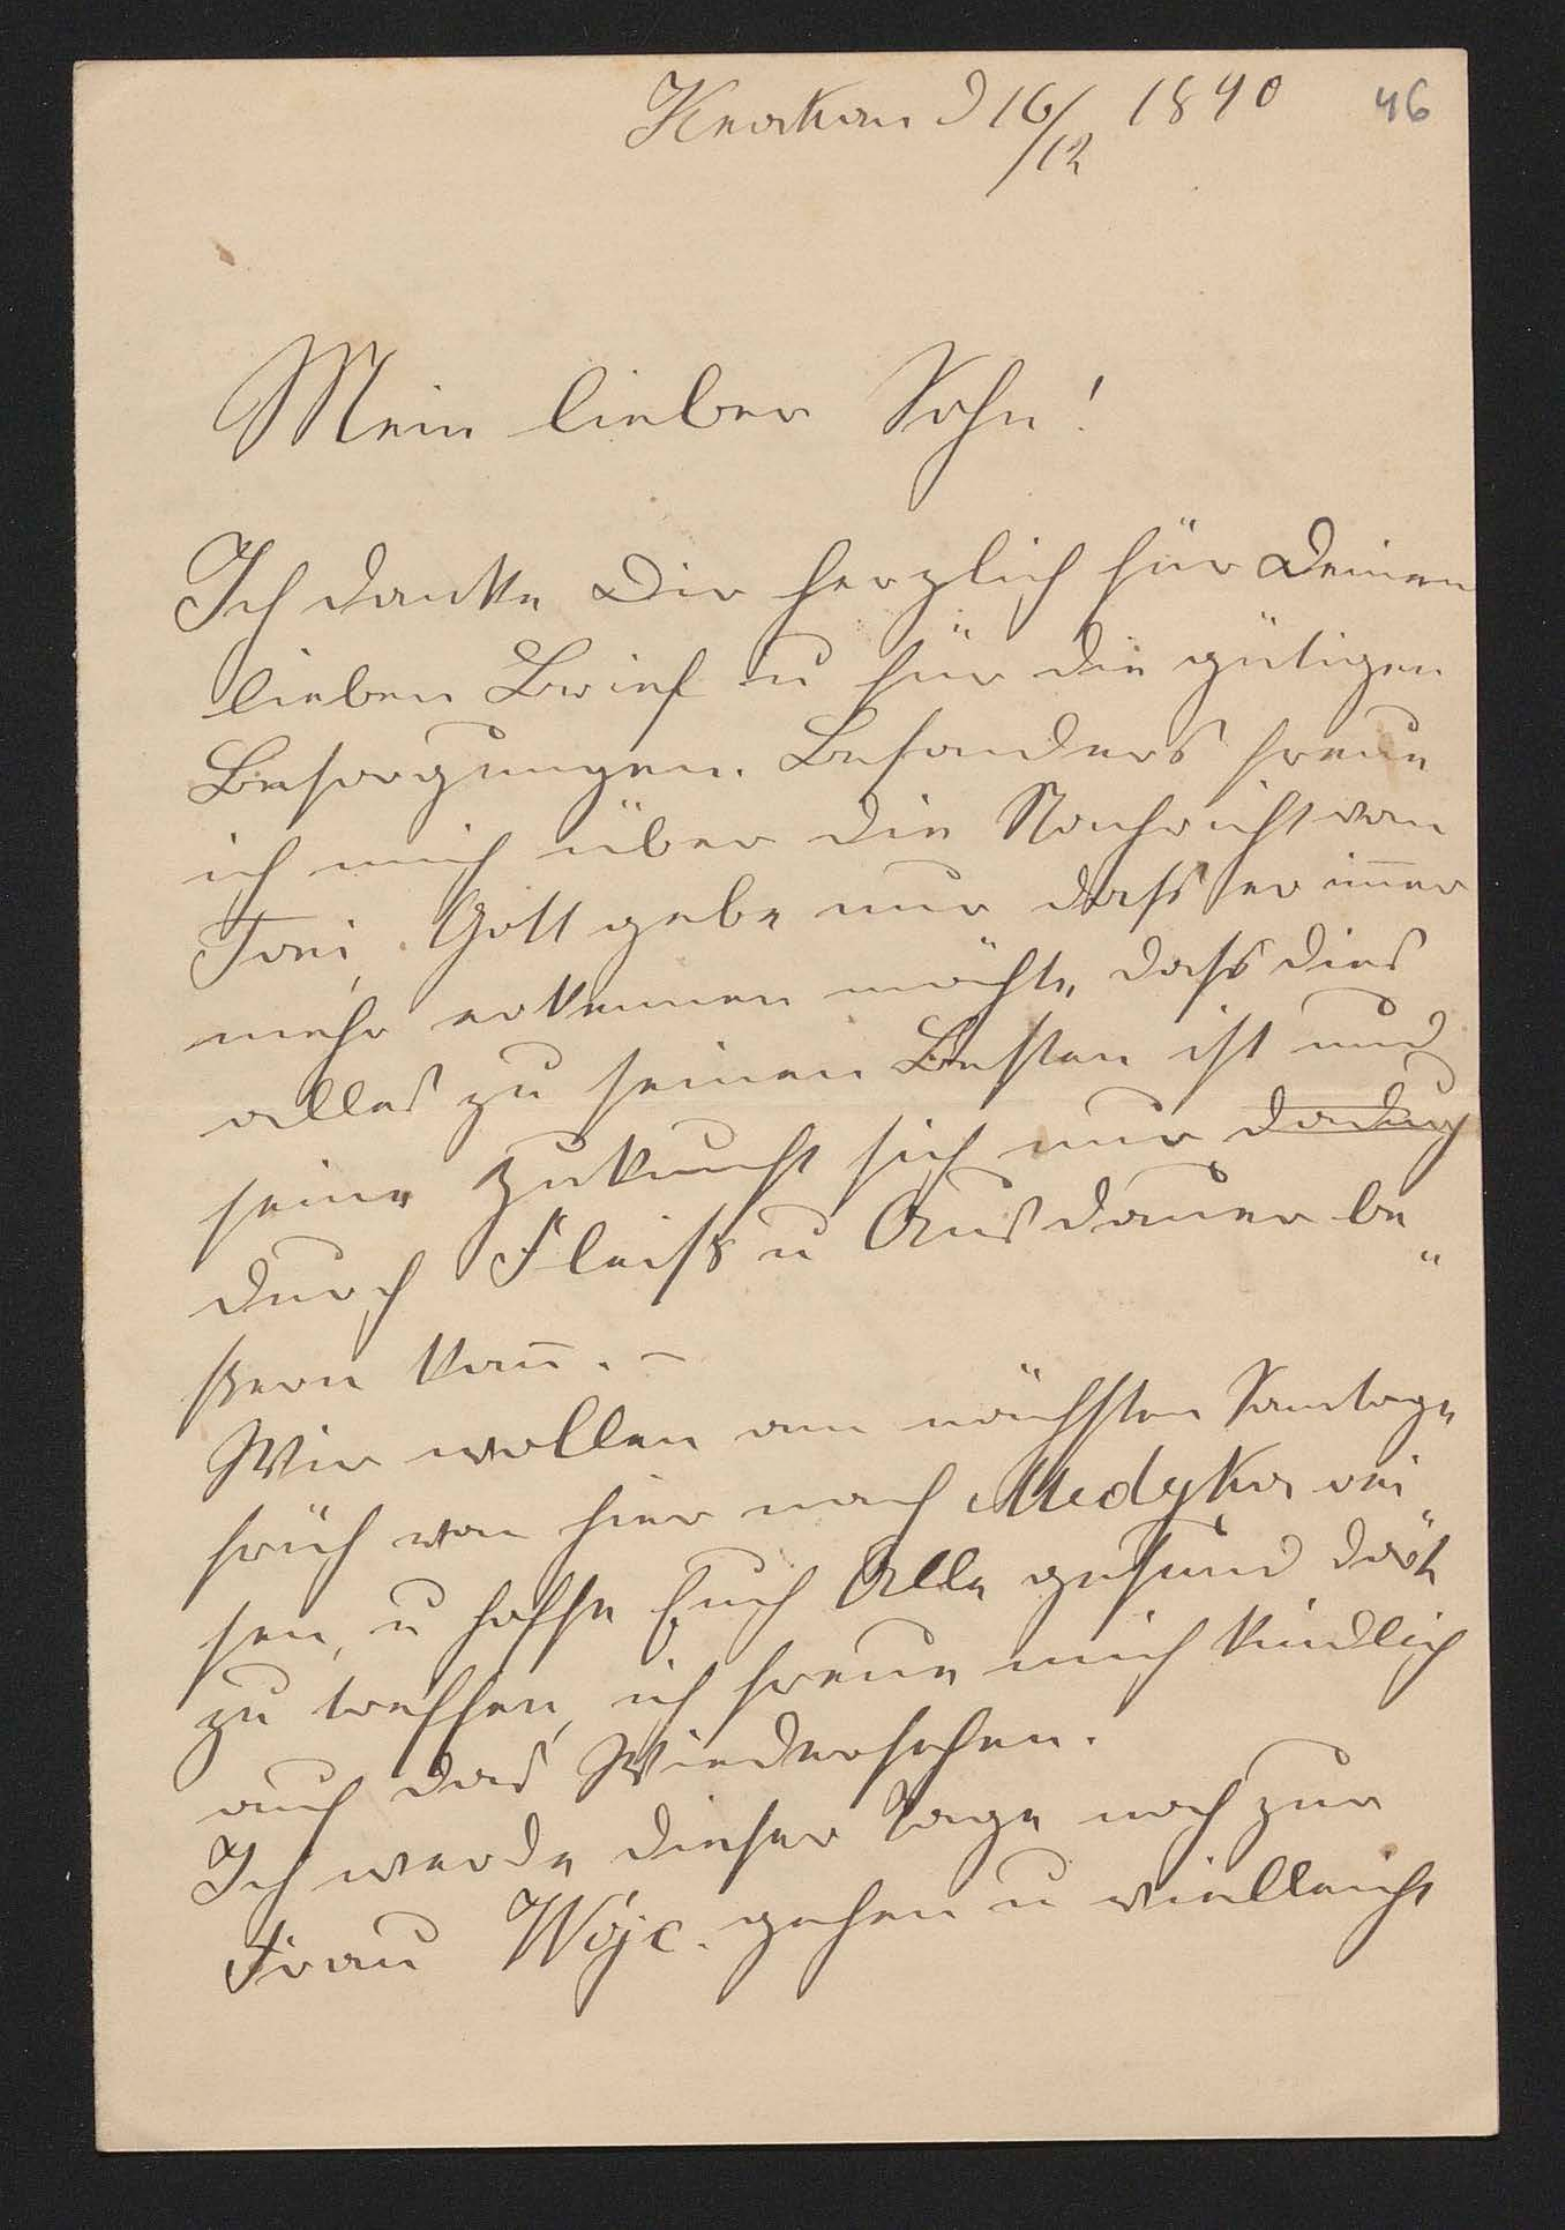 Krakau d 16/12 1890
46
Mein lieber Sohn!
Ich danke Dir herzlich für Deinen
lieben Brief u für die gütigen
Besorgungen. Besonders freue
ich mich über die Nachricht von
Toni. Gott gebe nur dass er im̅er
mehr erkennen möchte, dass dies
alles zu seinen Besten ist und
seine Zukunft sich nur dadurch
durch Fleiss u Ausdauer be„
ssern kan̅. –
Wir wollen am nächsten Samtage
früh von hier nach Medyka rei„
sen, u hoffe Euch Alle gesund dort
zu treffen, ich freue mich kindlich
auf das Wiedersehen.
Ich werde dieser Tage noch zur
Frau Wójc. gehen u vielleicht